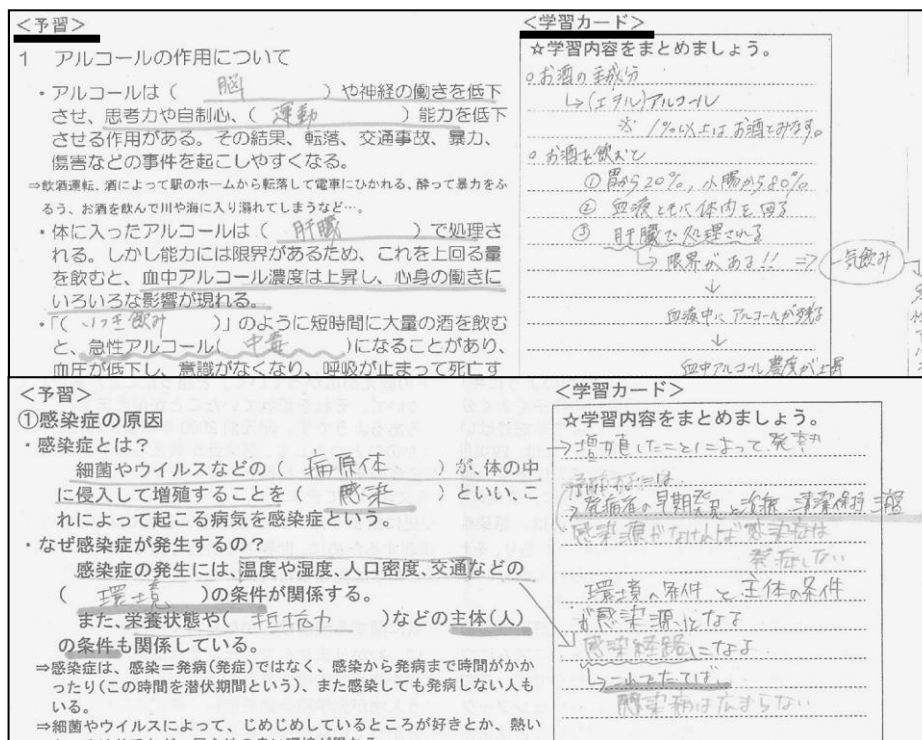 <予習>
1 アルコールの作用について
・アルコールは( 脳 )や神経の働きを低下
させ、思考力や自制心、( 運動 )能力を低下
させる作用がある。その結果、転落、交通事故、暴力、
傷害などの事件を起こしやすくなる。
⇒飲酒運転、酒によって駅のホームから転落して電車にひかれる、酔って暴力をふ
るう、お酒を飲んで川や海に入り溺れてしまうなど…。
・体に入ったアルコールは( 肝臓 )で処理さ
れる。しかし能力には限界があるため、これを上回る量
を飲むと、血中アルコール濃度は上昇し、心身の働きに
いろいろな影響が現れる。
・「( いっき飲み )」のように短時間に大量の酒を飲む
と、急性アルコール( 中毒 )になることがあり、
血圧が低下し、意識がなくなり、呼吸が止まって死亡す
<学習カード>
☆学習内容をまとめましょう。
○お酒の主成分
↳(エチル)アルコール
※ 1%以上はお酒とみなす。
○お酒を飲むと
① 胃から20%,小腸から80%
② 血液とともに体内を回る
③ 肝臓で処理される
↳限界がある!! ⇒ 一気飲み
↓
血液中にアルコールが残る
↓
血中アルコール濃度が上昇
<予習>
①感染症の原因
・感染症とは?
細菌やウイルスなどの( 病原体 )が、体の中
に侵入して増殖することを( 感染 )といい、こ
れによって起こる病気を感染症という。
・なぜ感染症が発生するの?
感染症の発生には、温度や湿度、人口密度、交通などの
( 環境 )の条件が関係する。
また、栄養状態や( 抵抗力 )などの主体(人)
の条件も関係している。
⇒感染症は、感染=発病(発症)ではなく、感染から発病まで時間がかか
ったり(この時間を潜伏期間という)、また感染しても発病しない人も
いる。
⇒細菌やウイルスによって、じめじめしているところが好きとか、熱い
<学習カード>
☆学習内容をまとめましょう。
→増殖したことによって発熱
予防するには
→発病者の早期発見と治療 清潔保持 消毒
感染源がなければ感染症は
発症しない
環境の条件と主体の条件
が感染源となる
感染経路になる
↳これをたてば
感染病は広まらない